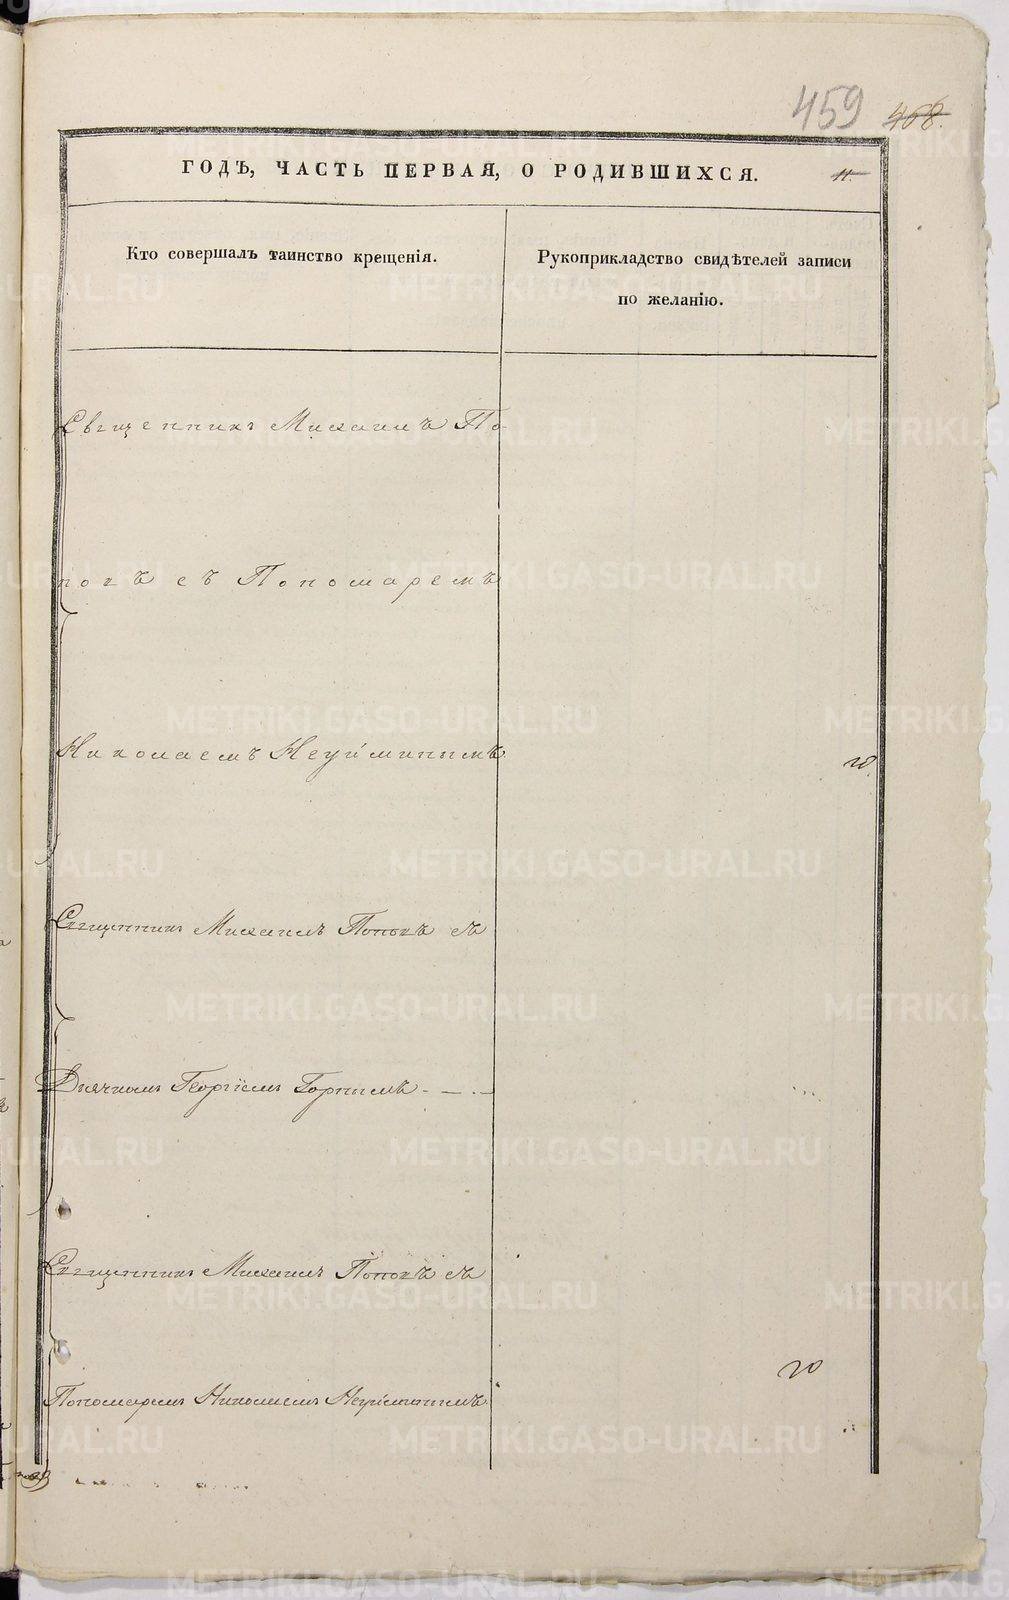 459 468.
ГОДЪ, ЧАСТЬ ПЕРВАЯ, О РОДИВШИХСЯ. 11.
Кто совершалъ таинство крещенія.
Рукоприкладство свидѣтелей записи
по желанію.
Священникъ Михаилъ По-
повъ съ Пономаремъ
Николаемъ Неуйминымъ
Священникъ Михаилъ Поповъ съ
Дьячкомъ Георгіемъ Горнымъ
Священникъ Михаилъ Поповъ съ
Пономаремъ Николаемъ Неуйминымъ
METRIKI.GASO-URAL.RU